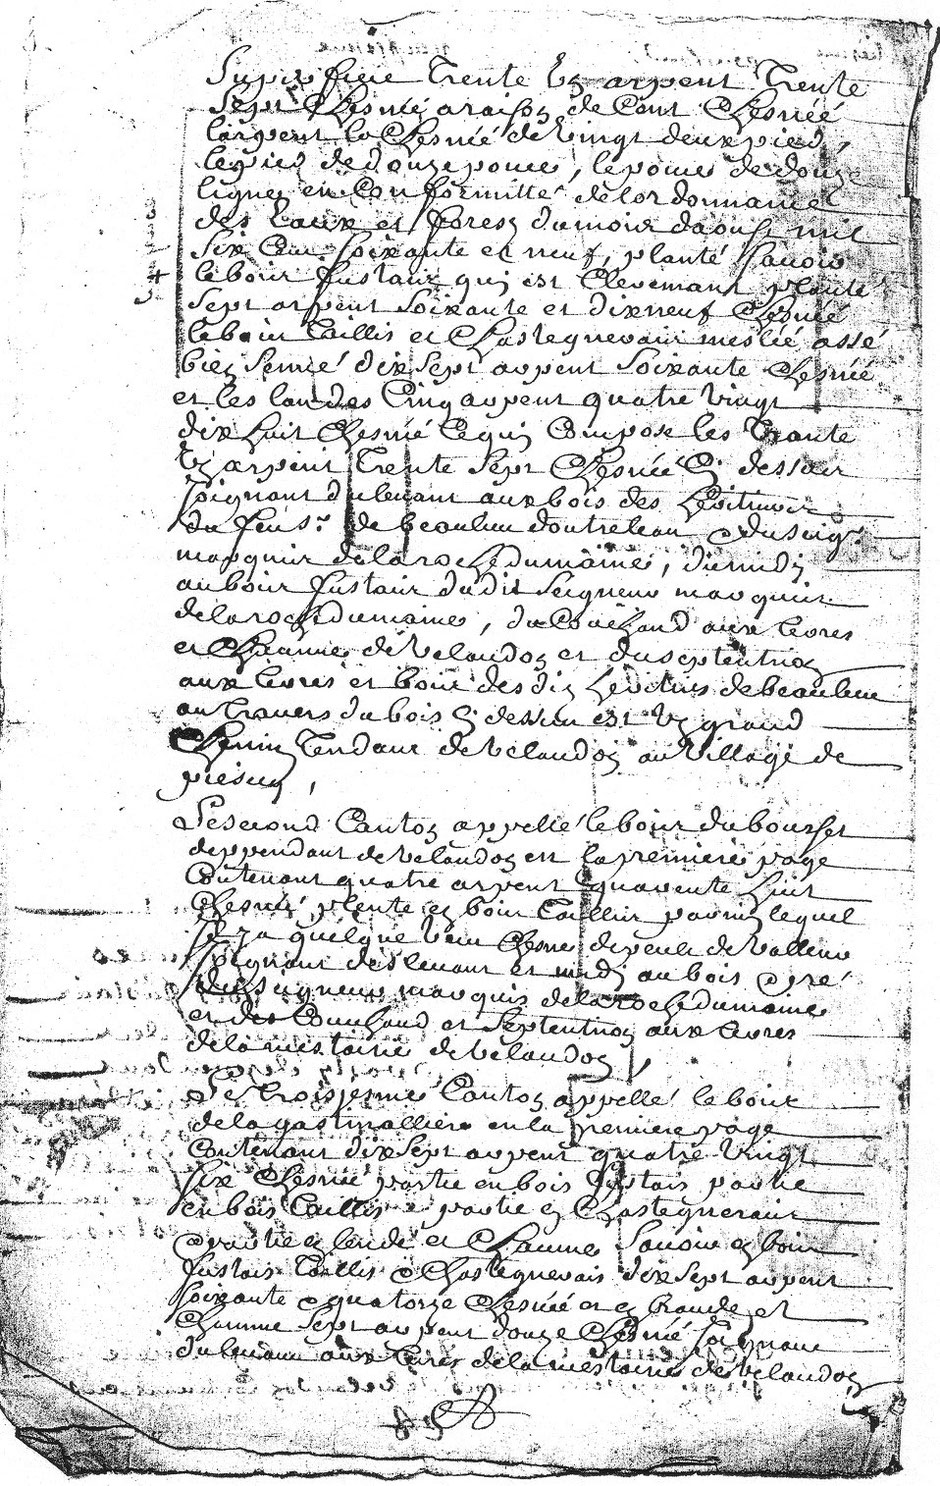 Superficie trente un arpent trente
sept chesnée araison de Cent Chesnéé
larpent la Chesnéé de vingt deux pied,
le pied de douze pouce, le pouce de douze
lignes en Conformitté de lordonnance
des Eaux et forest du mois daoust mil
six Cent soixante et neuf, planté sauoir
le bois fustais qui est Clevemant planté
sept arpent soixante et dix neuf Chesnéé
le bois taillis et Chastegnerais meslée assé
bien semée dix sept arpent soixante Chesnéé
et les landes Cinq arpent quatre vingt
dix huit Chesnée Ce qui Compose les trante
un arpent trente sept Chesnéé Cy dessus
joignant du leuant aux bois des héritiers
du feu sr. de beaulieu doutreleau & du seigr.
marquis de la rochedumaine, du midy
au bois fustais du dit seigneur marquis
de la rochedumaine, du Couchand aux terres
et Chaume de velaudon et du septentrion
aux terres et bois des dis heritiers de beaulieu
au trauers du bois Cy dessus est un grand
Chemin tendant de velaudon au village de

Le second Canton appellé le bois du bourset
deppendant de velaudon en la premiere page
Contenant quatre arpent quarente huit
Chesnéé plente en bois taillis parmy lequel
il y a quelque vieu Chesne de peu de valleur
joignant des leuant et midy au bois & pré
du seigneur marquis de la rochedumaine
et des Couchand et septentrion aux terres
de la mestairie de velaudon,
Le troisiesme Canton appellé le bois
de la gastinalliere en la premiere page
Contenant dix sept arpent quatre vingt
six Chesnée partie en bois fustais partie
en bois taillis & partie en Chastegnerais
& partie en lende et Chaume sauoir en bois
fustais taillis & Chastegnerais dix sept arpent
soixante & quatorze Chesnéé et en brande et
Chaume sept arpent douze Chesnéé joignant
du leuant aux terres de la mestairie de velaudon